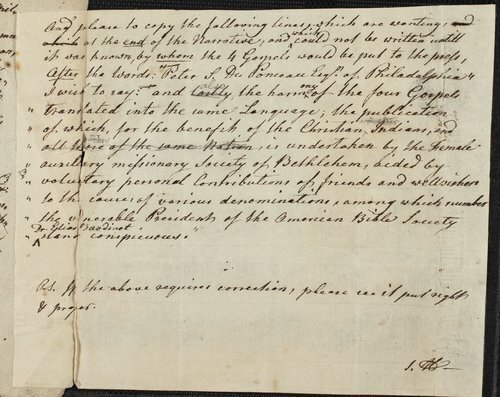 And please to copy the following lines, which are wanting, and
which at the end of the Narrative; and which could not be written until
it was known, by whom the 4 Gospels would be put to the press,
After the words: Peter S. Du Ponceau Esqr. of Philadelphia"
I wish to say: "and lastly, the harmony of the four Gospels
" translated into the same Language; the publication
" of which, for the benefit of the Christian, Indians, and
" all those of the same Nation, is undertaken by the Female
" auxiliary missionary Society of Bethlehem, aided by
" voluntary personal Contributions of friends and wellwishers
" to the cause, of various denominations; among which number
" the venerable Presidents of the American Bible Society
Dr. Elias Boudinot
" stand conspicuous."
P.S. If the above requires correction, please see it put right
& proper.
J. H